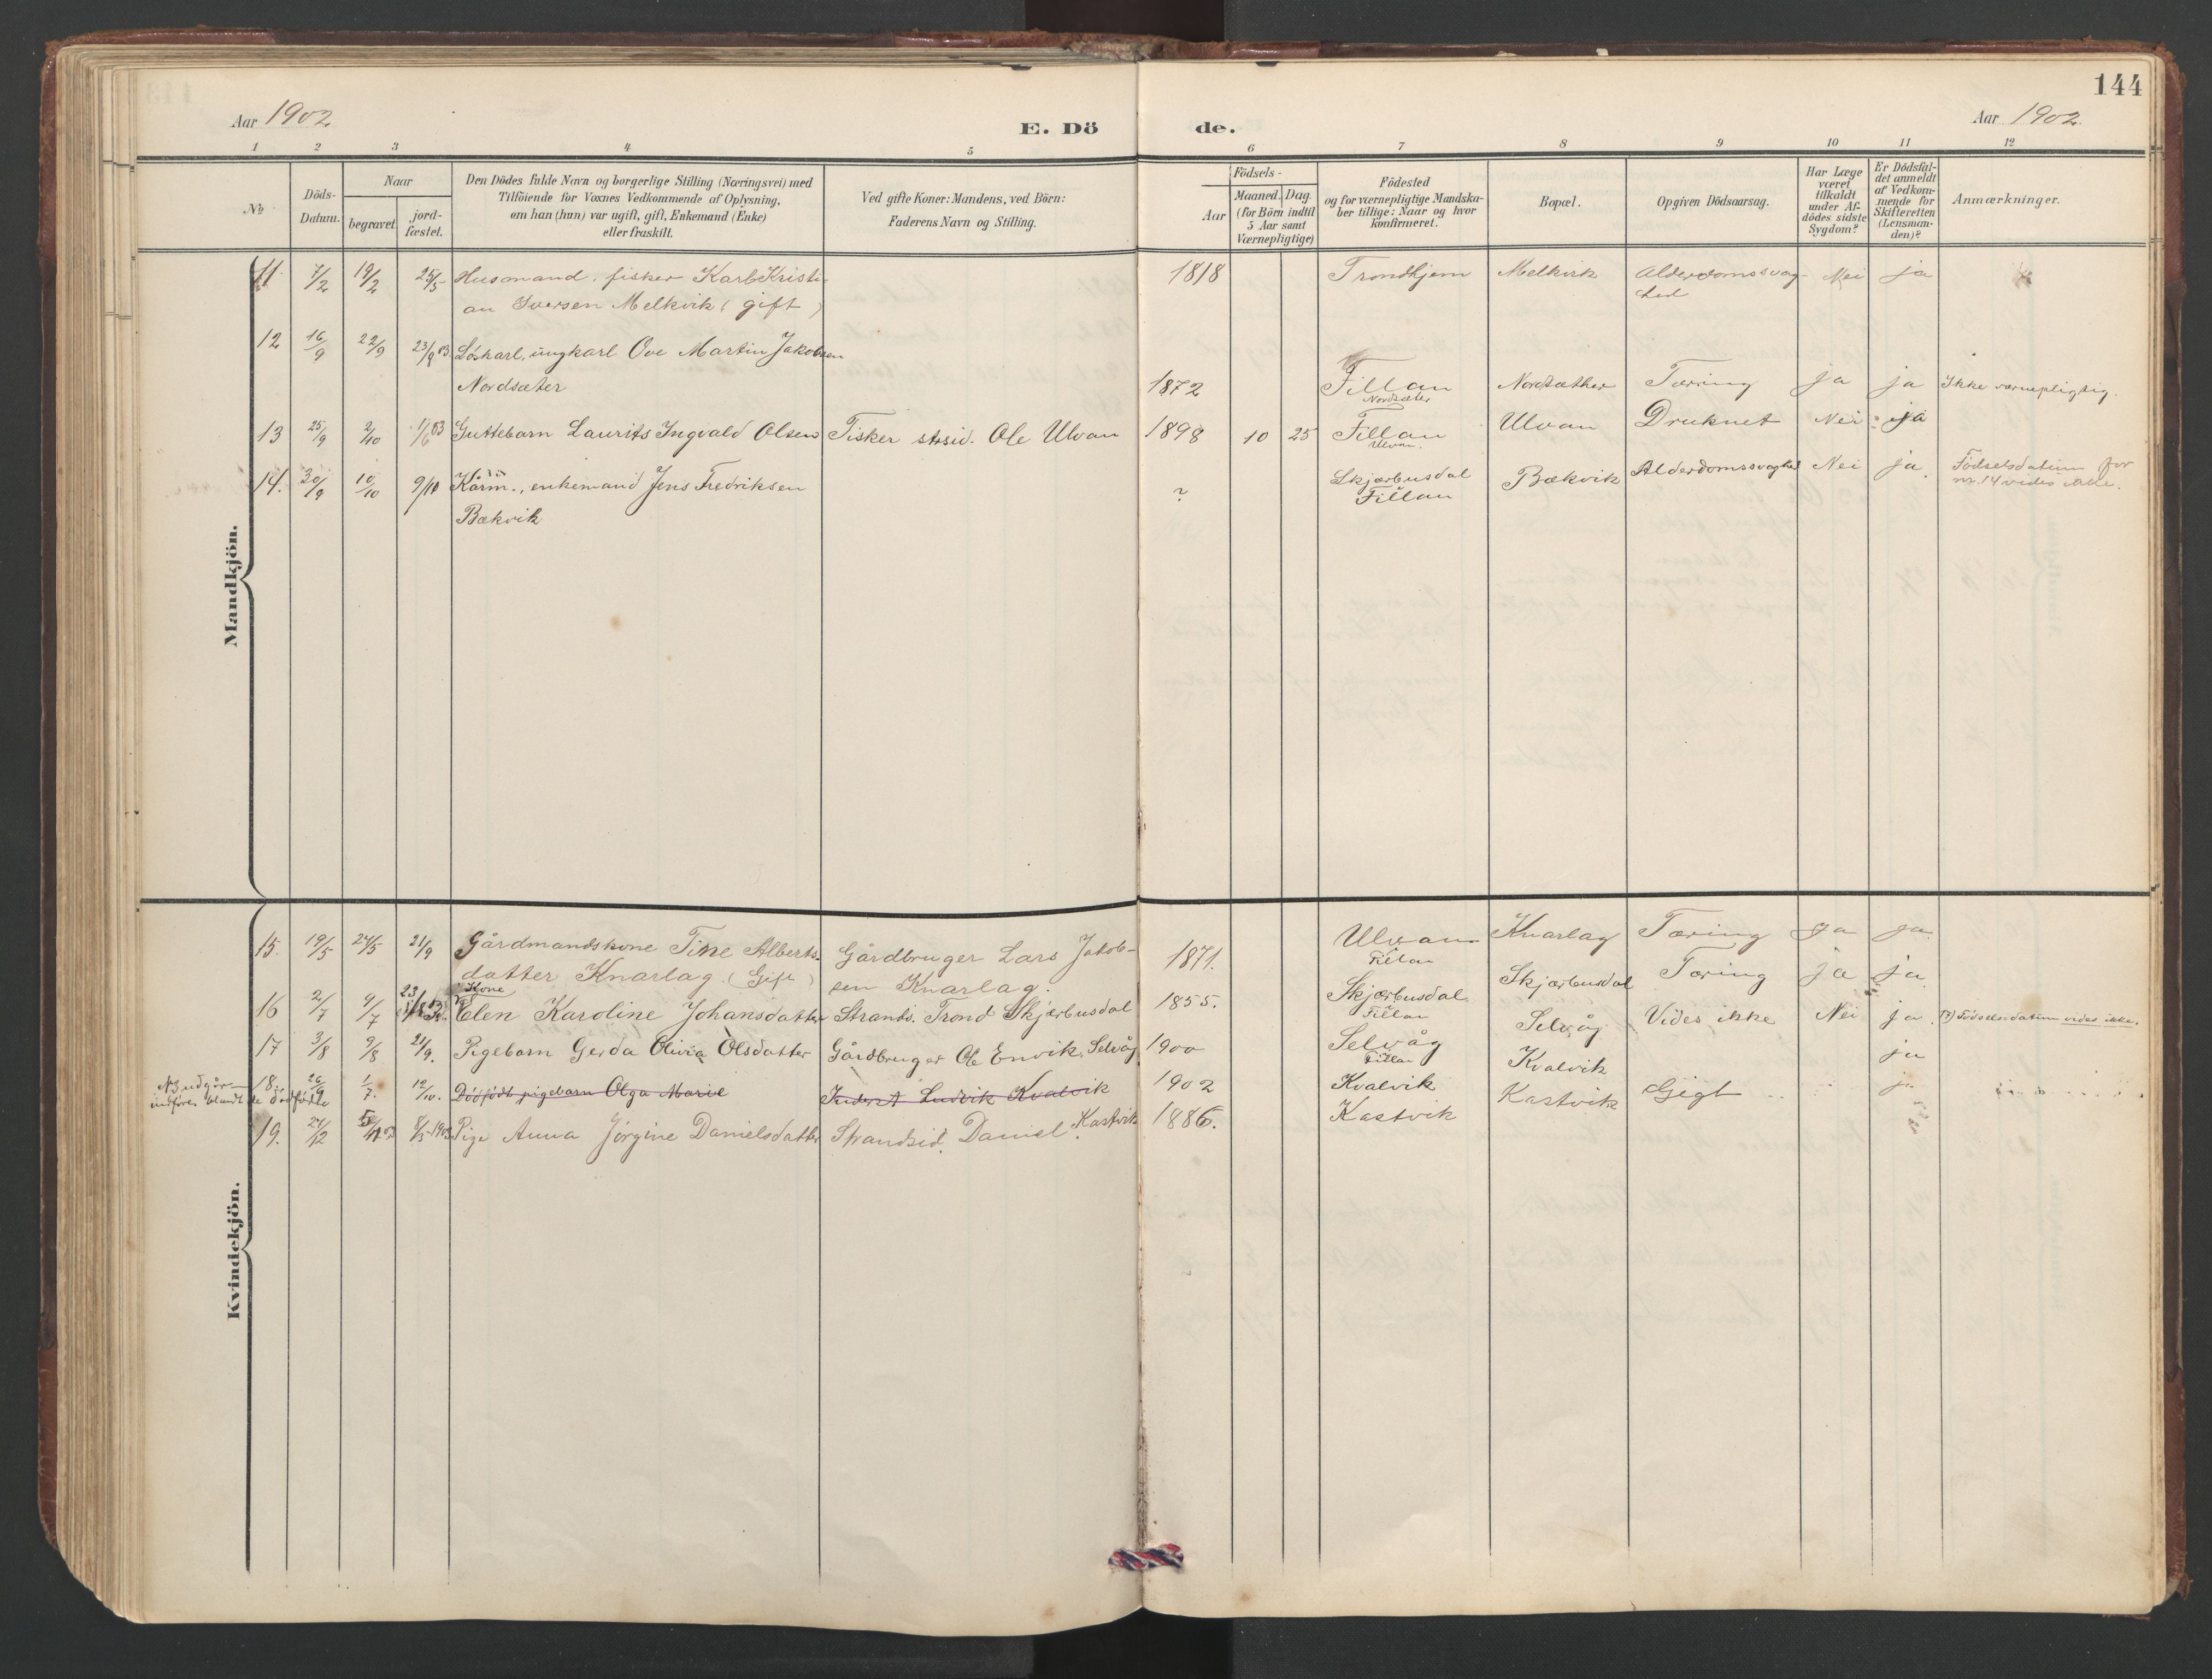 144
Aar 1902
E. Dö
de.
Aar 1902.
1 2 3 4 5 6 7 8 9 10 11 12
No
Döds-
Datum.
Naar
begravet.
jord-
fæstet.
Den Dödes fulde Navn og borgerlige Stilling (Næringsvei) med
Tilföiende for Voxnes Vedkommende af Oplysning,
om han (hun) var ugift, gift, Enkemand (Enke)
eller fraskilt.
Ved gifte Koner: Mandens, ved Börn:
Faderens Navn og Stilling.
Födsels-
Aar
Maaned. Dag.
(for Börn indtil
5 Aar samt
Værnepligtige)
Födested
og for værnepligtige Mandska-
ber tillige: Naar og hvor
konfirmeret.
Bopæl.
Opgiven Dödsaarsag.
Har Læge
været
tilkaldt
under Af-
dödes sidste
Sygdom?
Er Dödsfal-
det anmeldt
af Vedkom-
mende for
Skifteretten
(Lensman-
den)?
Anmærkninger.
Mandkjön.
11. 7/2 19/2 25/5 Husmand, fisker Karl Kristi- 1818 Trondhjem Melkvik Alderdomssvag- Nei ja
an Iversen Melkvik (gift) hed
12 16/9 22/9 23/8 03 Löskarl, ungkarl Ove Martin Jakobsen
Nordsæter 1872 Fillan Nordsæther Tæring ja ja Ikke værnepligtig.
Nordsæter
13 25/9 2/10 1/6 03 Guttebarn Laurits Ingvald Olsen Fisker strsid. Ole Ulvan 1898 10 25 Fillan Ulvan Druknet Nei ja
Ulvan.
14. 30/9 10/10 9/10 Kårm., enkemand Jens Fredriksen ? Skjærbusdal Bækvik Alderdomssvaghed Nei ja. Födselsdatum for
Bækvik Fillan nr. 14 vides ikke.
Kvindekjön.
15. 19/5 24/5 21/9 Gårdmandskone Tine Alberts- Gårdbruger Lars Jakob- 1871. Ulvan Knarlag Tæring ja ja.
datter Knarlag. (Gift) sen Knarlag. Fillan
Kone
16 2/7 9/7 Elen Karoline Johansdatter Strands. Trond Skjærbusdal 1855. Skjærbusdal Skjærbusdal Tæring ja ja.
Fillan
17 3/8 9/8 21/9. Pigebarn Gerda Olivia Olsdatter Gårdbruger Ole Envik, Selvåg 1900 Selvåg Selvåg Vides ikke Nei ja. 17) Födselsdatum vides ikke.
Fillan
No udgår—
indföres blandt de dödfödte
18. 26/9 1/7. 12/10. Dödfödt pigebarn Olga Marie Inderst Ludvik Kvalvik 1902 Kvalvik Kvalvik ja
19. 27/12 8/3-1903 Pige Anna Jörgine Danielsdatter Strandsid. Daniel Kastvik 1886. Kastvik Kastvik Gigt ja